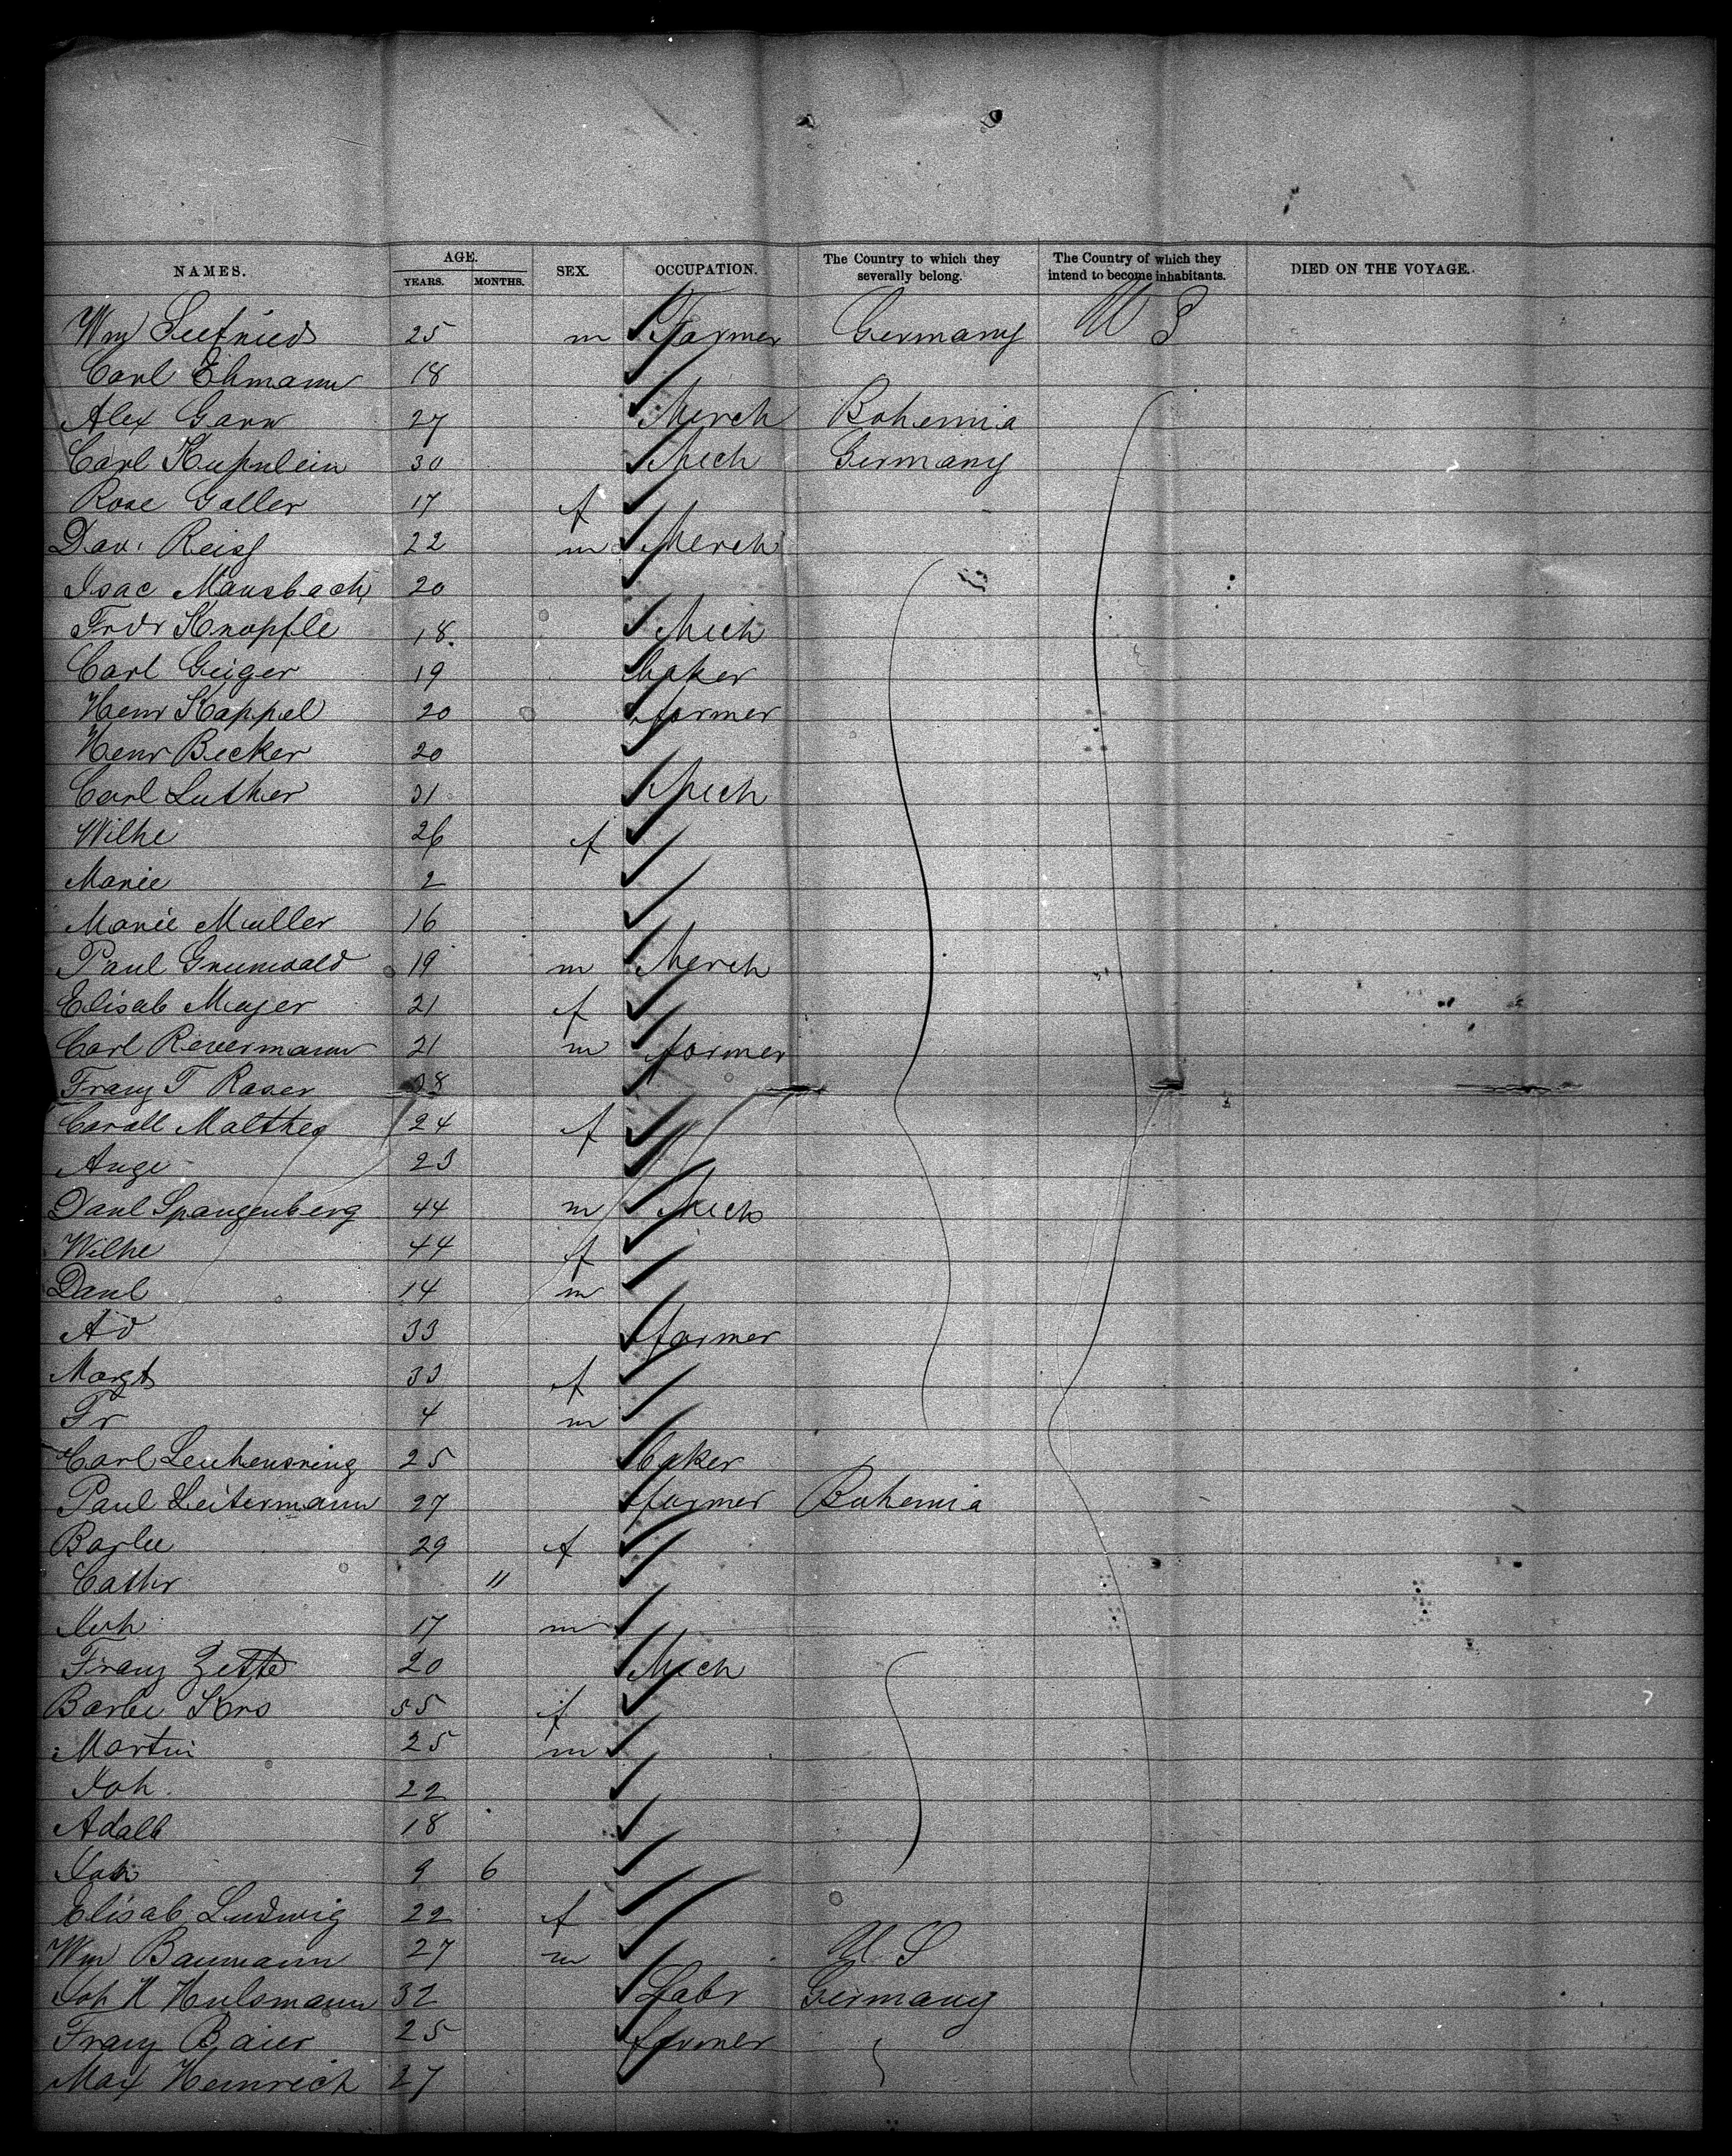 NAMES. AGE. YEARS. MONTHS. SEX. OCCUPATION. The Country to which they severally belong. The Country of which they intend to become inhabitants. DIED ON THE VOYAGE.
Wm Seefried 25 m Farmer Germany U S
Carl Ehmann 18
Alex Gann 27 Merch Bohemia
Carl 30 Mech Germany
Rose Galler 17 f
Dav. Reiss 22 m Merch
Isac Mansbach 20
Fredr Knopfle 18 Mech
Carl Geiger 19 baker
Henr Kappel 20 farmer
Henr Becker 20
Carl Luther 31 Mech
Wilhe 26 f
Marie 2
Marie Muller 16
Paul Grunwald 19 m Merch
Elisab Mayer 21 f
Carl Revermann 21 m farmer
Franz T Raser 38
Caroll Maltheg 24 f
Auge 23
Danl Spangenberg 44 m Mech
Wilhe 44 f
Danl 14 m
Ad 33 farmer
Margt 33 f
Fr 4 m
Carl 25 baker
Paul Leitermann 27 farmer Bohemia
Barbe 29 f
Cathr 11
Joh 17 m
Franz Zette 20 Mech
Barbe Krs 55 f
Martin 25 m
Joh. 22
Adalb 18
Joh 9 6
Elisab Ludwig 22 f
Wm Baumann 27 m U S
Joh H Hulsmann 32 Labr Germany
Franz Baier 25 farmer
Max Heinrich 27